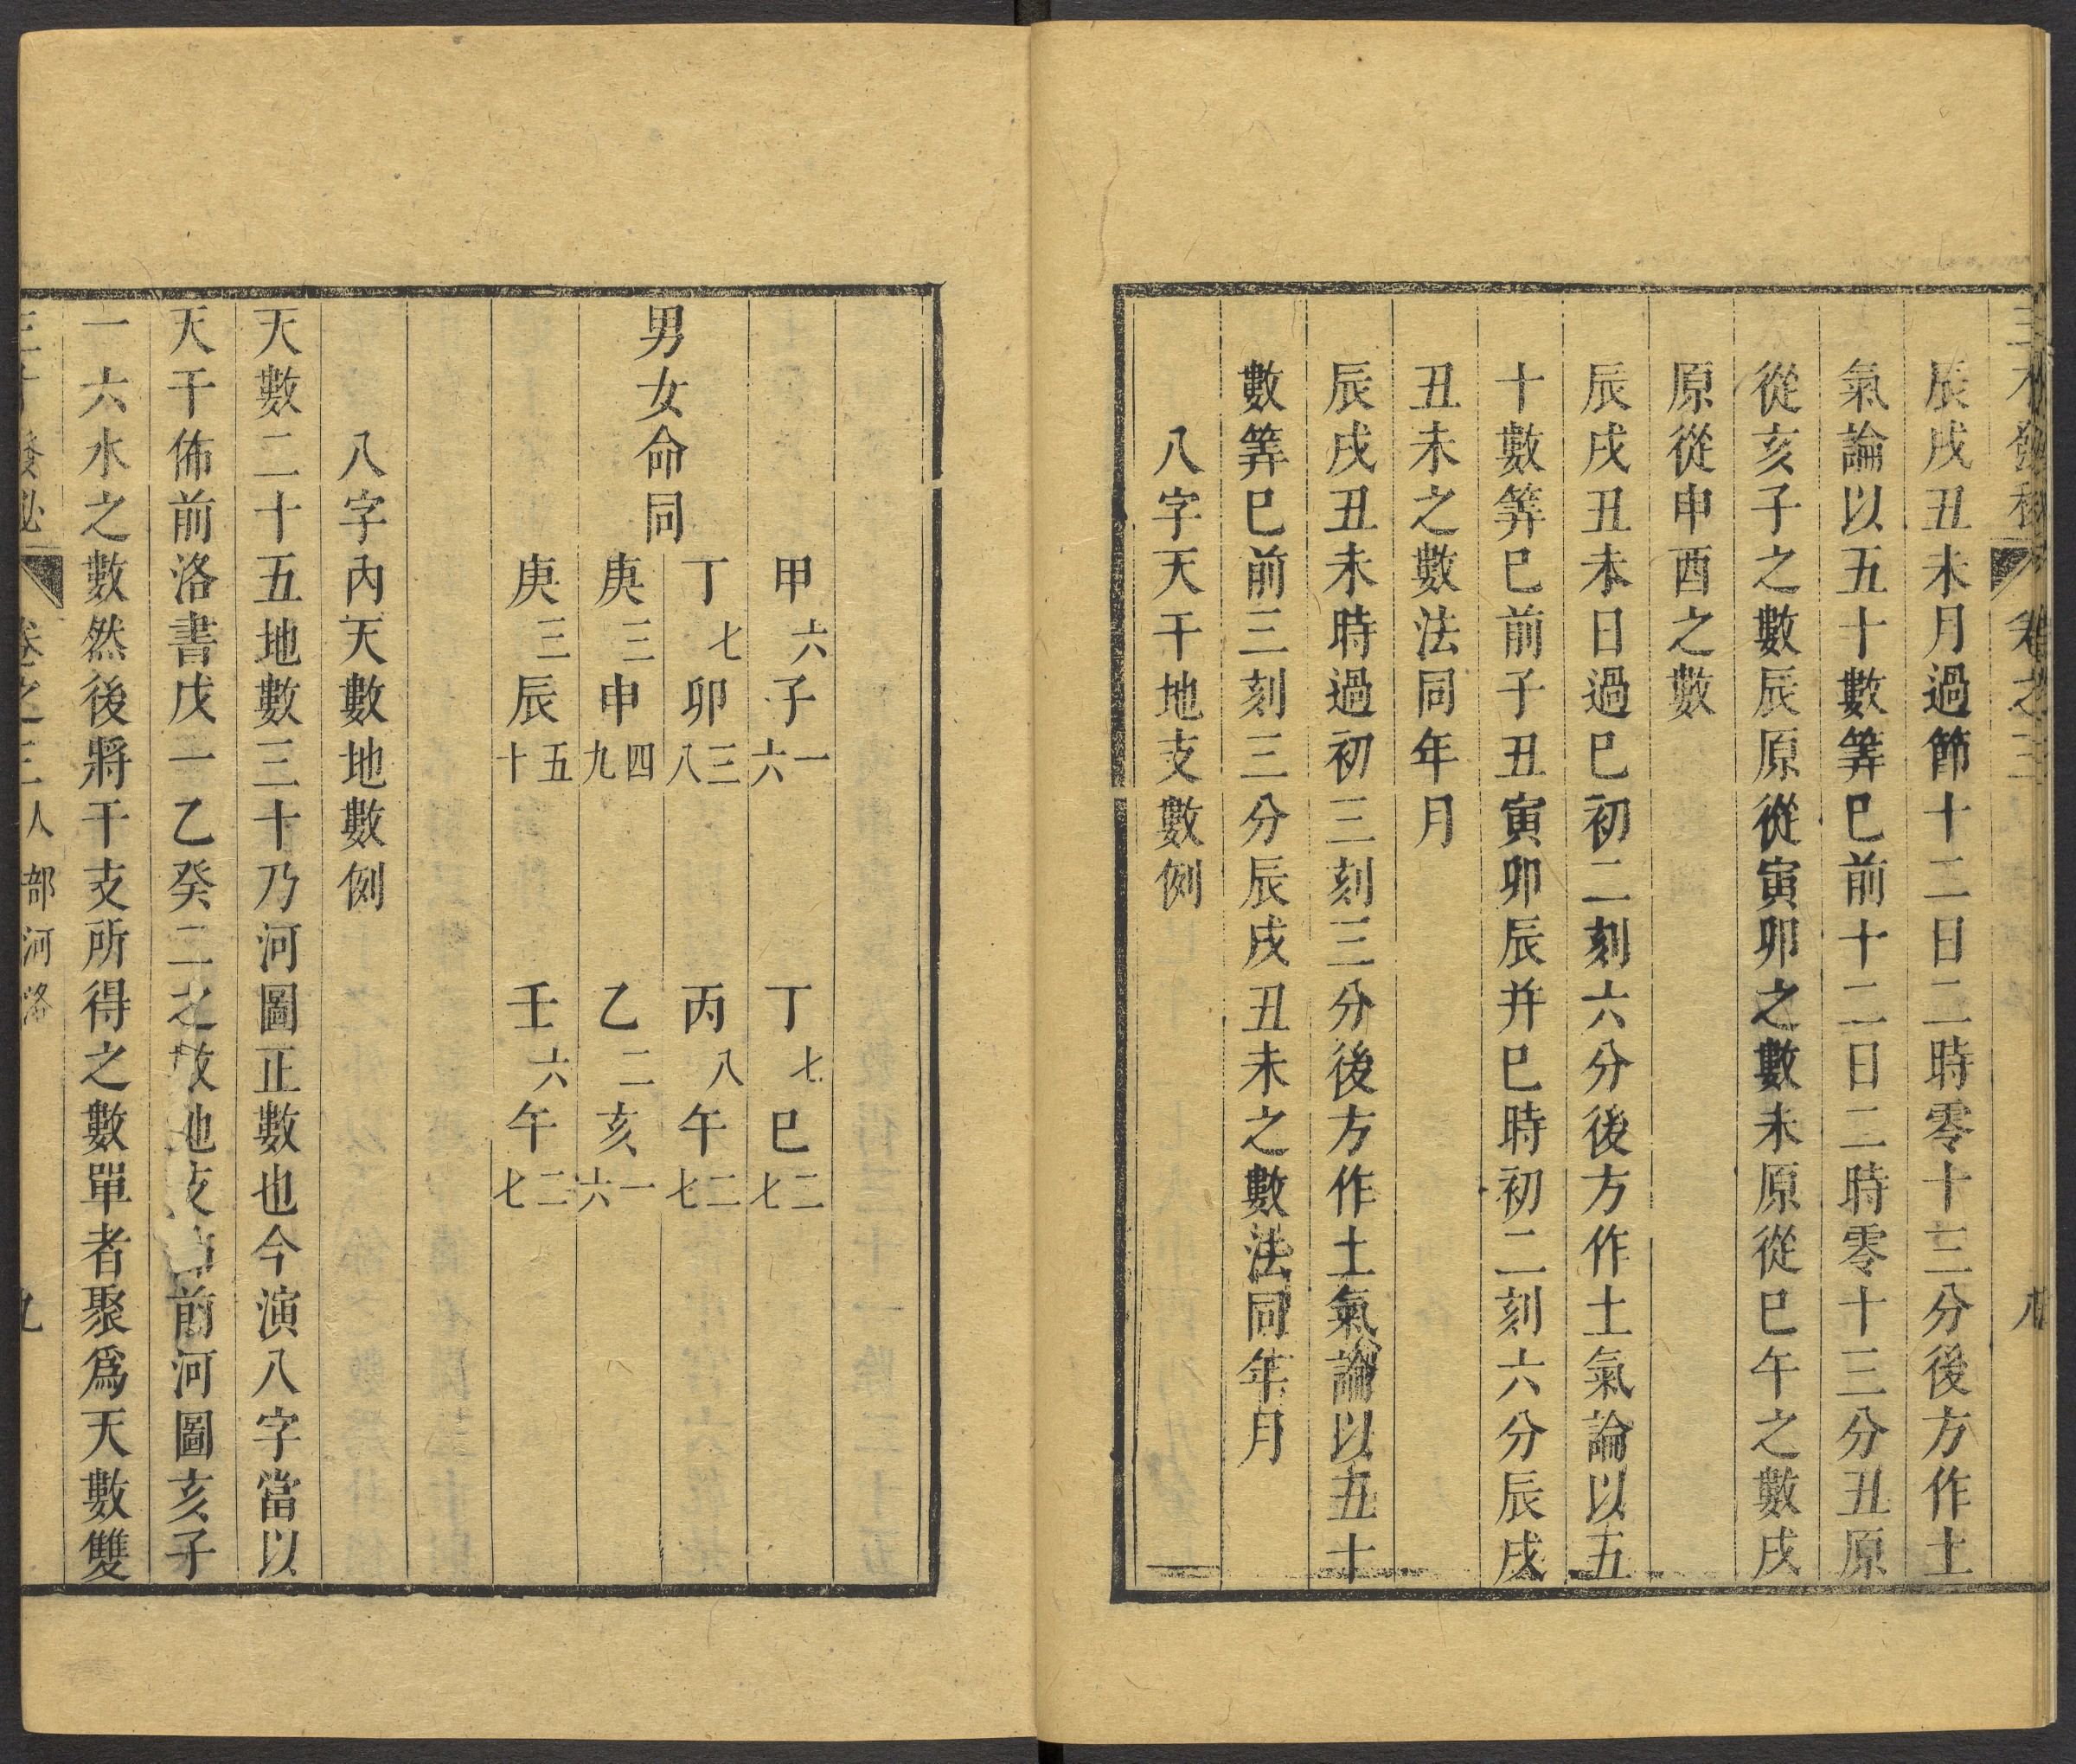 辰戌丑未月過節十二日二時零十三分後方作土
氣論以五十數筭巳前十二日二時零十三分丑原
從亥子之數辰原從寅卯之數未原從巳午之數戌
原從申酉之數
辰戌丑未日過巳初二刻六分後方作土氣論以五
十數筭巳前子丑寅卯辰并巳時初二刻六分辰戌
丑未之數法同年月
辰戌丑未時過初三刻三分後方作土氣論以五十
數筭巳前三刻三分辰戌丑未之數法同年月
八字天干地支數例
男女命同
甲六子一六 丁七巳二七
丁七卯三八 丙八午二七
庚三申四九 乙二亥一六
庚三辰五十 壬六午二七
八字內天數地數例
天數二十五地數三十乃河圖正數也今演八字當以
天干佈前洛書戊一乙癸二之 地支 前河圖亥子
一六水之數然後將干支所得之數單者聚爲天數雙
卷之三人部河洛 九